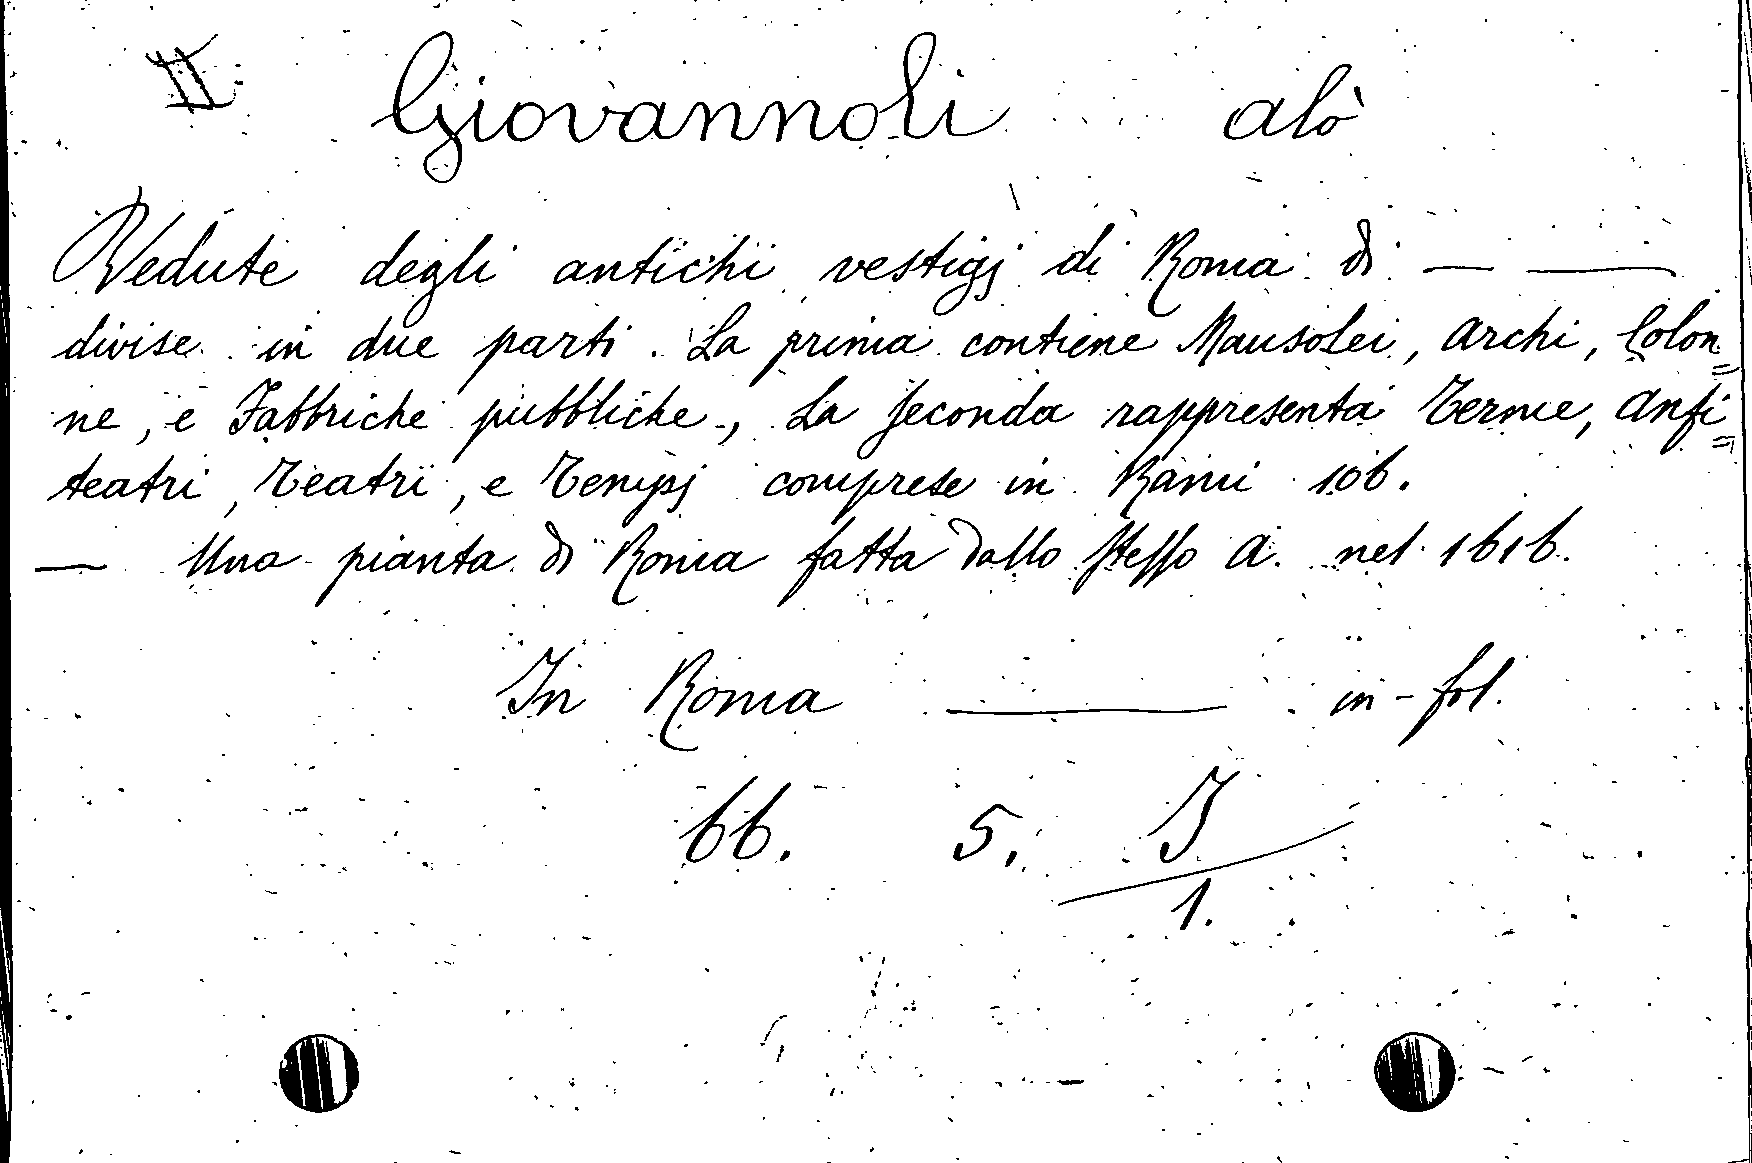 II Giovannoli alò
Vedute degli antichi vestigj di Roma di — —
divise in due parti. La prima contiene Mausolei, Archi, Colon=
ne, e Fabbriche pubbliche, La seconda rappresenta Terme, Anfi=
teatri, Teatri, e Tempj comprese in Rami 106.
— Una pianta di Roma fatta dallo stesso A. nel 1616.
In Roma — in-fol.
66. 5. I
1.